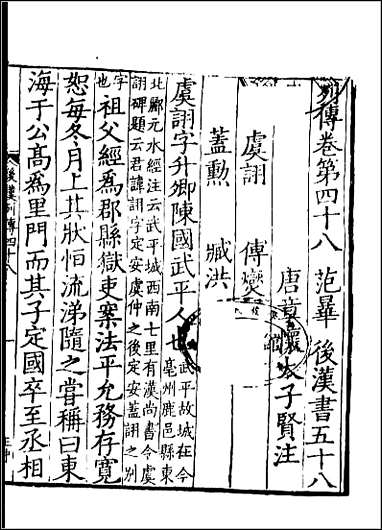 列傳卷第四十八 范曄 後漢書五十八
唐章懷太子賢注
虞詡 傅燮
蓋勲 臧洪
虞詡字升卿陳國武平人也
武平故城在今亳州鹿邑縣東
北酈元水經注云武平城西南七里有漢尚書令虞
詡碑題云君諱詡字定安虞仲之後定安蓋詡之別
字也
祖父經爲郡縣獄吏案法平允務存寛
恕每冬月上其狀恒流涕隨之嘗稱曰東
海于公高爲里門而其子定國卒至丞相
後漢列傳四十八